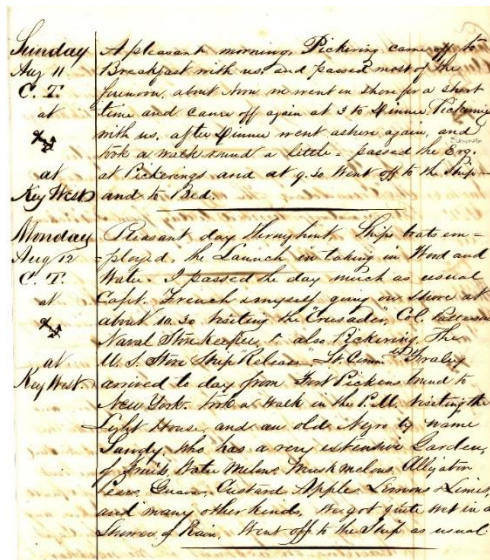 Sunday
Aug 11
C. T.
at
at
Key West
A pleasant morning, Pickering came off to
Breakfast with us, and passed most of the
forenoon, about Noon we went on shore for a short
time and came off again at 3 to dinner, Pickering
with us, after dinner went ashore again, and
took a walk round a little - passed the Evg.
at Pickerings and at 9.30 went off to the Ship -
and to Bed.
Monday
Aug 12
C. T.
at
at
Key West
Pleasant day throughout, Ships boats em-
-ployed, the Launch in taking in Wood and
Water. I passed the day much as usual
Capt. French & myself going on shore at
about 10.30 visiting the Crusader, Col.
Naval Store keeper, & also Pickering. The
U. S. Store Ship Release Lt Comm
arrived to day from Fort Pickens bound to
New York. Took a walk in the P.M. visiting the
Light House, and an old Negro by name
Sandy, who has a very extensive Garden,
of fruit, Water Melons, Musk melons, Alligator
Pears, Guava, Custard Apples, Lemons & Limes,
and many other kinds, we got quite wet in a
Shower of Rain, Went off to the Ship as usual